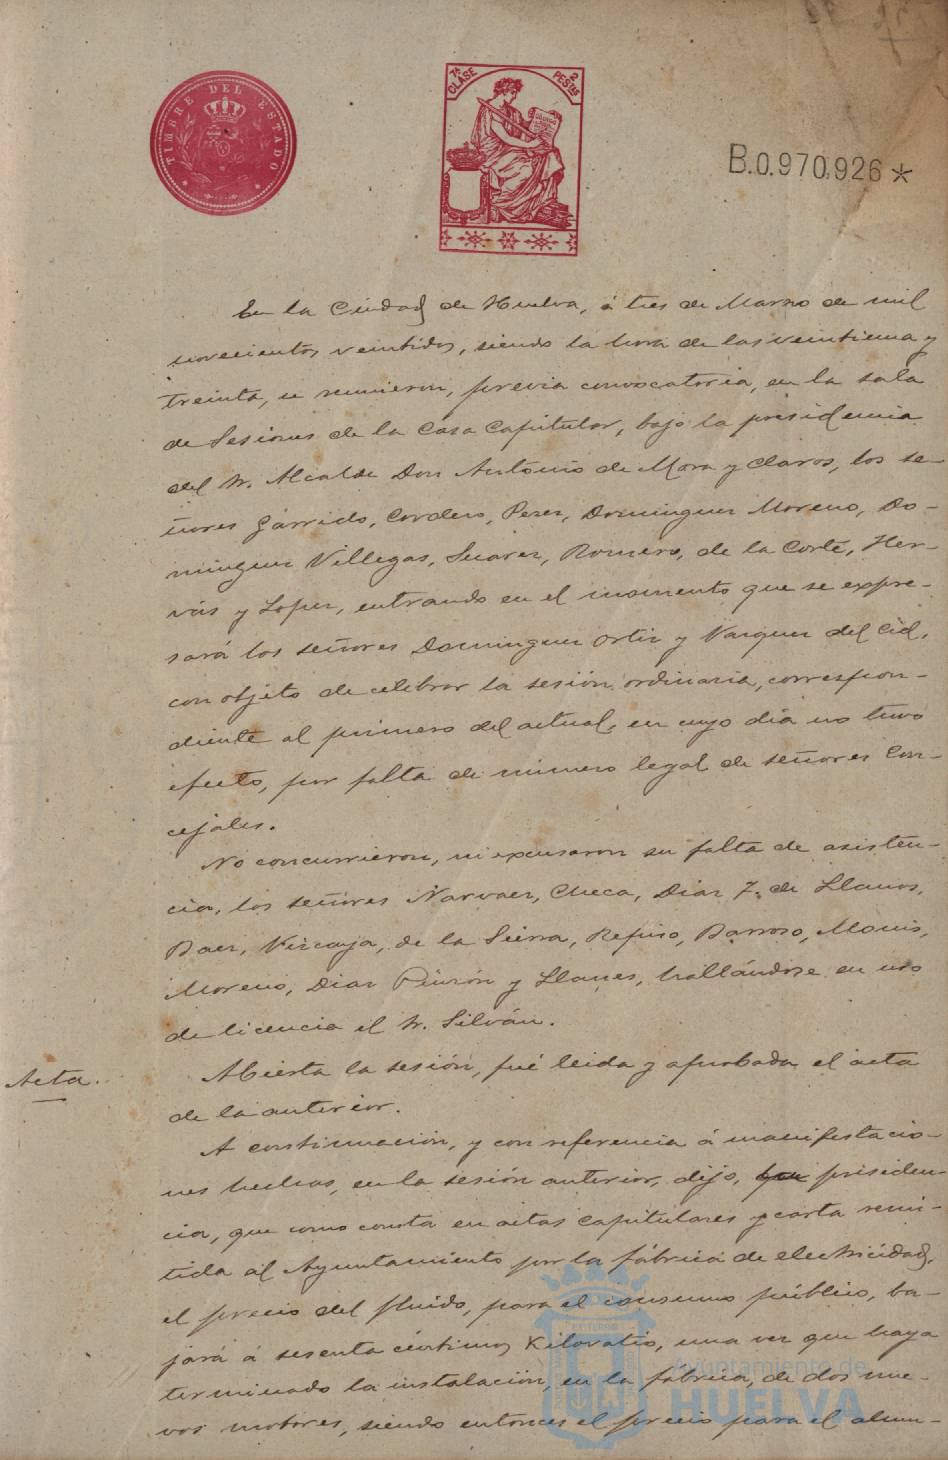 TIMBRE DEL ESTADO
7ª CLASE
2 PESTAS
B.0.970,926*
En la Ciudad de Huelva, á tres de Marzo de mil
novecientos veintidos, siendo la hora de las veintiuna y
treinta, se reunieron, previa convocatoria, en la sala
de Sesiones de la Casa Capitular, bajo la presidencia
del Sr. Alcalde Don Antonio de Mora y Claros, los se-
ñores Garrido, Cordero, Perez, Dominguez Moreno, Do-
minguez Villegas, Suarez, Romero, de la Corte, Her-
vás y Lopez, entrando en el momento que se expre-
sará los señores Dominguez Ortiz y Vazquez del Cid,
con objeto de celebrar la sesión ordinaria, correspon-
diente al primero del actual, en cuyo dia no tuvo
efecto, por falta de número legal de señores Con-
cejales.
No concurrieron, ni excusaron su falta de asisten-
cia, los señores Narvaez, Checa, Diaz F. de Llanos,
Baez, Vizcaya, de la Sierra, Refiso, Barroso, Monis,
Moreno, Diaz Pinzón y Llanes, hallándose en uso
de licencia el Sr. Silván.
Acta.
Abierta la sesión, fué leida y aprobada el acta
de la anterior.
A continuación, y con referencia á manifestacio-
nes hechas, en la sesión anterior, dijo, presiden-
cia, que como consta en actas capitulares y carta remi-
tida al Ayuntamiento por la fábrica de electricidad,
el precio del fluido, para el consumo público, ba-
jará á sesenta céntimos Kilovatio, una vez que haya
terminado la instalación, en la fábrica, de dos nue-
vos motores, siendo entonces el precio para el alum-
Ayuntamiento de
HUELVA